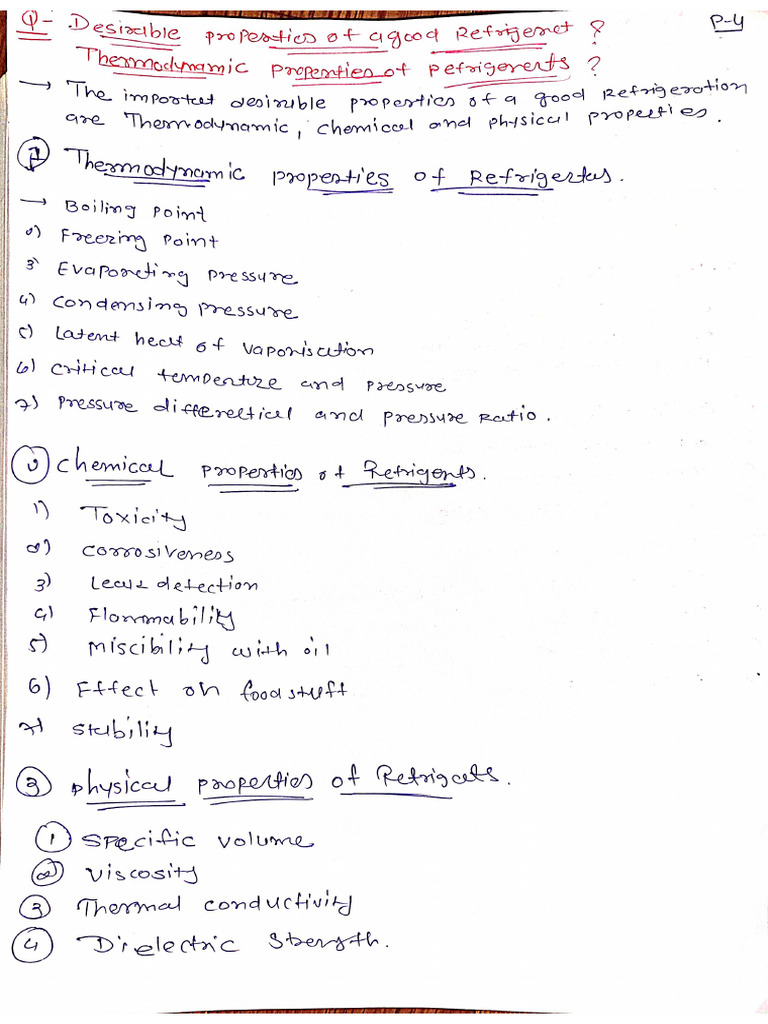 Q- Desirable properties of a good Refrigenet ? P-4
Thermodynamic properties of Refrigorerts ?
→ The importet desirable properties of a good Refrigeration
are Thermodynamic, chemical and physical properties.
① Thermodynamic properties of Refrigertas.
→ Boiling point
2) Freezing point
3 Evaporeting pressure
4) Condensing pressure
5) Latent heat of vaporisation
6) Critical tempertuze and pressure
7) Pressure differeltical and pressure Ratio.
② Chemical properties of Refrigents.
1) Toxicity
2) Corrosiveness
3) Leak detection
4) Flammability
5) Miscibility with oil
6) Effect on food stuff
7) Stability
③ physical properties of Refrigats.
① Specific volume
② Viscosity
③ Thermal conductivity
④ Dielectric Strength.